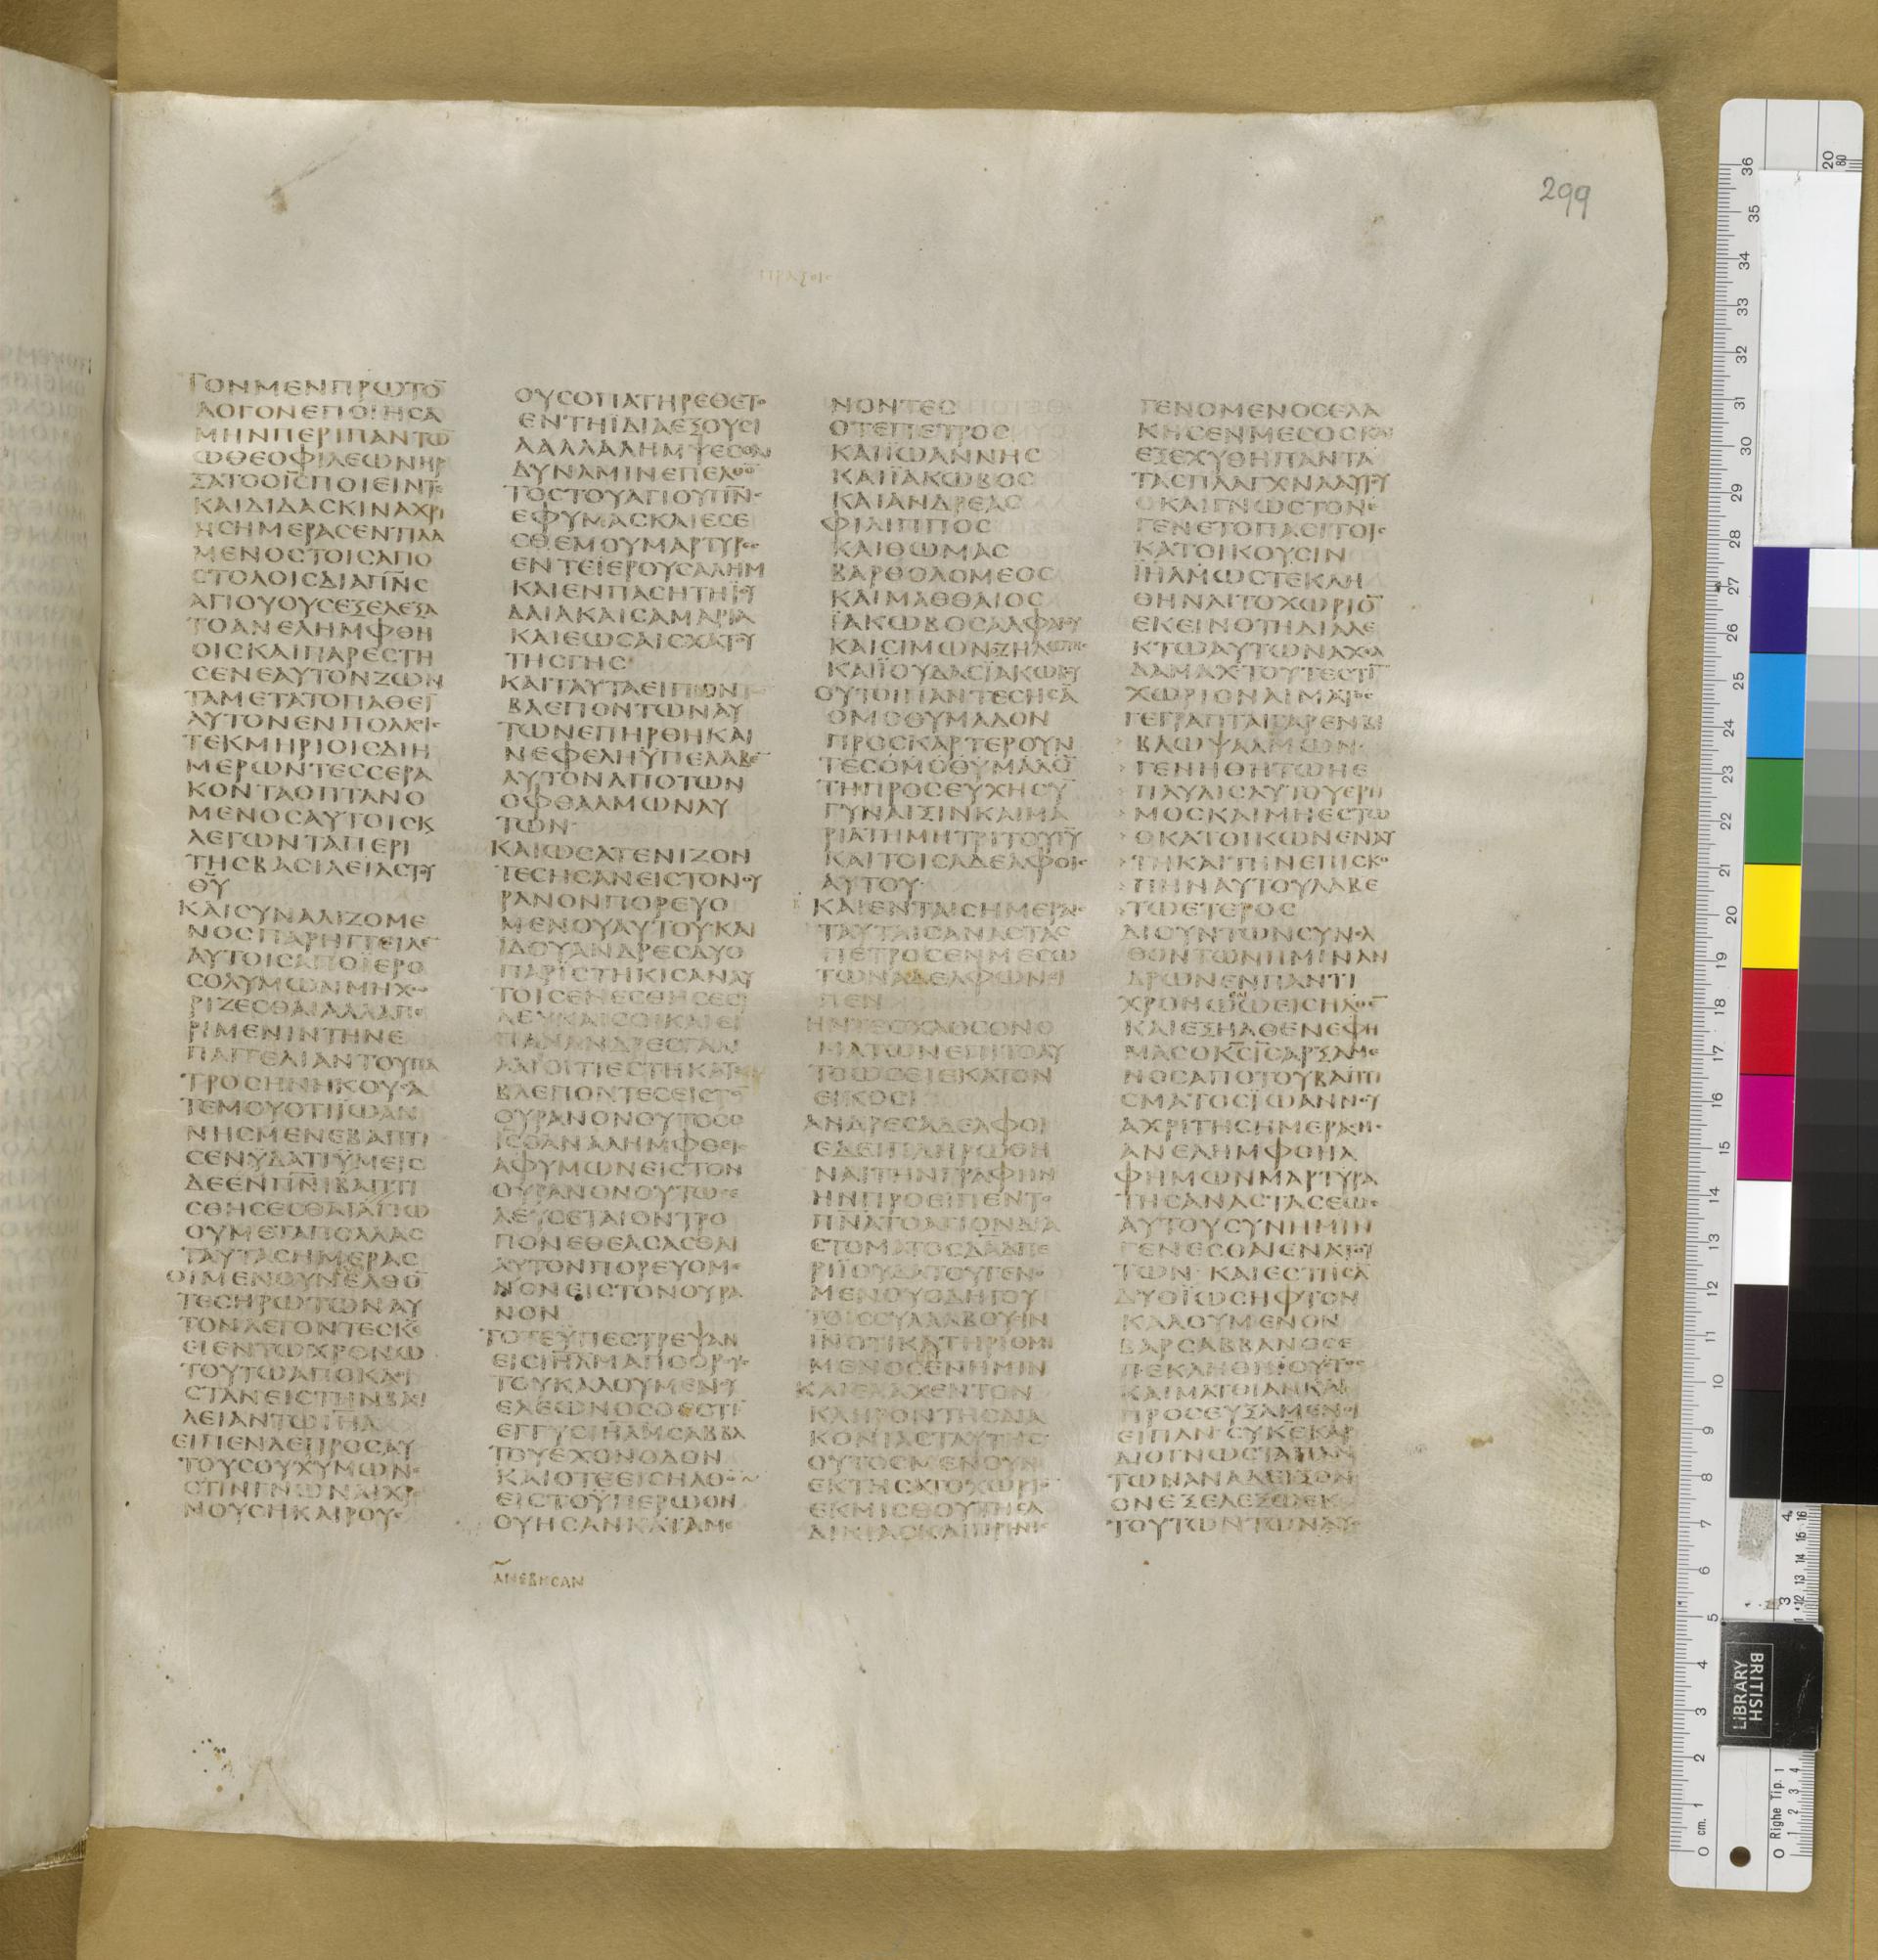 299
ΠΡΑΞΙϹ
ΤΟΝΜΕΝΠΡΩΤΟ̅
ΛΟΓΟΝΕΠΟΙΗϹΑ
ΜΗΝΠΕΡΙΠΑΝΤΩ̅
ΩΘΕΟΦΙΛΕΩΝΗΡ
ΞΑΤΟΟΙ̅Ϲ̅ΠΟΙΕΙΝΤΕ
ΚΑΙΔΙΔΑϹΚΙΝΑΧΡΙ
ΗϹΗΜΕΡΑϹΕΝΤΙΛΑ
ΜΕΝΟϹΤΟΙϹΑΠΟ
ϹΤΟΛΟΙϹΔΙΑΠ̅Ν̅Ϲ
ΑΓΙΟΥΟΥϹΕΞΕΛΕΞΑ
ΤΟΑΝΕΛΗΜΦΘΗ
ΟΙϹΚΑΙΠΑΡΕϹΤΗ
ϹΕΝΕΑΥΤΟΝΖΩΝ
ΤΑΜΕΤΑΤΟΠΑΘΕΙ̅
ΑΥΤΟΝΕΝΠΟΛΛΟΙϹ
ΤΕΚΜΗΡΙΟΙϹΔΙΗ
ΜΕΡΩΝΤΕϹϹΕΡΑ
ΚΟΝΤΑΟΠΤΑΝΟ
ΜΕΝΟϹΑΥΤΟΙϹΚ
ΛΕΓΩΝΤΑΠΕΡΙ
ΤΗϹΒΑϹΙΛΕΙΑϹΤΟΥ
Θ̅Υ̅
ΚΑΙϹΥΝΑΛΙΖΟΜΕ
ΝΟϹΠΑΡΗΓΓΕΙΛΕ̅
ΑΥΤΟΙϹΑΠΟΪΕΡΟ
ϹΟΛΥΜΩΝΜΗΧΩ
ΡΙΖΕϹΘΑΙΑΛΛΑΠΕ
ΡΙΜΕΝΙΝΤΗΝΕ
ΠΑΓΓΕΛΙΑΝΤΟΥΠΑ
ΤΡΟϹΗΝΗΚΟΥϹΑ
ΤΕΜΟΥΟΤΙΪΩΑΝ
ΝΗϹΜΕΝΕΒΑΠΤΙ
ϹΕΝΫΔΑΤΙΫΜΕΙϹ
ΔΕΕΝΠ̅Ν̅Ι̅ΒΑΠΤΙ
ϹΘΗϹΕϹΘΑΙΑΓΙΩ
ΟΥΜΕΤΑΠΟΛΛΑϹ
ΤΑΥΤΑϹΗΜΕΡΑϹ
ΟΙΜΕΝΟΥΝΕΛΘΟ̅
ΤΕϹΗΡΩΤΩΝΑΥ
ΤΟΝΛΕΓΟΝΤΕϹΚ̅Ε̅
ΕΙΕΝΤΩΧΡΟΝΩ
ΤΟΥΤΩΑΠΟΚΑΘΙ
ϹΤΑΝΕΙϹΤΗΝΒΑϹΙ
ΛΕΙΑΝΤΩΙ̅Η̅Λ̅
ΕΙΠΕΝΔΕΠΡΟϹΑΥ
ΤΟΥϹΟΥΧΥΜΩΝΕ
ϹΤΙΝΓΝΩΝΑΙΧΡΟ
ΝΟΥϹΗΚΑΙΡΟΥϹ
ΟΥϹΟΠΑΤΗΡΕΘΕΤΟ
ΕΝΤΗΪΔΙΑΕΞΟΥϹΙ
ΑΑΛΛΑΛΗΜΨΕϹΘΑΙ
ΔΥΝΑΜΙΝΕΠΕΛΘΟ̅
ΤΟϹΤΟΥΑΓΙΟΥΠ̅Ν̅Ϲ
ΕΦΥΜΑϹΚΑΙΕϹΕ
ϹΘΕΜΟΥΜΑΡΤΥΡΕϹ
ΕΝΤΕΙΕΡΟΥϹΑΛΗΜ
ΚΑΙΕΝΠΑϹΗΤΗΪΟΥ
ΔΑΙΑΚΑΙϹΑΜΑΡΙΑ
ΚΑΙΕΩϹΑΙϹΧΑΤΟΥ
ΤΗϹΓΗϹ
ΚΑΙΤΑΥΤΑΕΙΠΟΝΤΩ̅
ΒΛΕΠΟΝΤΩΝΑΥ
ΤΩΝΕΠΗΡΘΗΚΑΙ
ΝΕΦΕΛΗΫΠΕΛΑΒΕ̅
ΑΥΤΟΝΑΠΟΤΩΝ
ΟΦΘΑΛΜΩΝΑΥ
ΤΩΝ
ΚΑΙΩϹΑΤΕΝΙΖΟΝ
ΤΕϹΗϹΑΝΕΙϹΤΟΝΟΥ
ΡΑΝΟΝΠΟΡΕΥΟ
ΜΕΝΟΥΑΥΤΟΥΚΑΙ
ΪΔΟΥΑΝΔΡΕϹΔΥΟ
ΠΑΡΙϹΤΗΚΙϹΑΝΑΥ
ΤΟΙϹΕΝΕϹΘΗϹΕϹΙ
ΛΕΥΚΑΙϹΟΙΚΑΙΕΙ
ΠΑΝΑΝΔΡΕϹΓΑΛΙ
ΛΑΙΟΙΤΙΕϹΤΗΚΑΤΕ
ΒΛΕΠΟΝΤΕϹΕΙϹΤΟ̅
ΟΥΡΑΝΟΝΟΥΤΟϹΟ
Ι̅Ϲ̅ΟΑΝΑΛΗΜΦΘΕΙϹ
ΑΦΥΜΩΝΕΙϹΤΟΝ
ΟΥΡΑΝΟΝΟΥΤΩϹΕ
ΛΕΥϹΕΤΑΙΟΝΤΡΟ
ΠΟΝΕΘΕΑϹΑϹΘΑΙ
ΑΥΤΟΝΠΟΡΕΥΟΜΕ
ΝΟΝΕΙϹΤΟΝΟΥΡΑ
ΝΟΝ
ΤΟΤΕΫΠΕϹΤΡΕΨΑΝ
ΕΙϹΙ̅Η̅Λ̅Μ̅ΑΠΟΟΡΟΥϹ
ΤΟΥΚΑΛΟΥΜΕΝΟΥ
ΕΛΕΩΝΟϹΟΕϹΤΙ̅
ΕΓΓΥϹΙ̅Η̅Λ̅Μ̅ϹΑΒΒΑ
ΤΟΥΕΧΟΝΟΔΟΝ
ΚΑΙΟΤΕΕΙϹΗΛΘΟ̅
ΕΙϹΤΟΫΠΕΡΩΟΝ
ΟΥΗϹΑΝΚΑΤΑΜΕ
ΑΝΕΒΗϹΑΝ
ΝΟΝΤΕϹ
ΟΤΕΠΕΤΡΟϹ
ΚΑΙΪΩΑΝΝΗϹ
ΚΑΙΪΑΚΩΒΟϹ
ΚΑΙΑΝΔΡΕΑϹ
ΦΙΛΙΠΠΟϹ
ΚΑΙΘΩΜΑϹ
ΒΑΡΘΟΛΟΜΕΟϹ
ΚΑΙΜΑΘΘΑΙΟϹ
ΪΑΚΩΒΟϹΑΛΦΑΙΟΥ
ΚΑΙϹΙΜΩΝΖΗΛΩΤΗϹ
ΚΑΙΪΟΥΔΑϹΪΑΚΩΒΟΥ
ΟΥΤΟΙΠΑΝΤΕϹΗϹΑ̅
ΟΜΟΘΥΜΑΔΟΝ
ΠΡΟϹΚΑΡΤΕΡΟΥΝ
ΤΕϹΟΜΟΘΥΜΑΔΟ̅
ΤΗΠΡΟϹΕΥΧΗϹΥ̅
ΓΥΝΑΙΞΙΝΚΑΙΜΑ
ΡΙΑΤΗΜΗΤΡΙΤΟΥΙ̅Υ̅
ΚΑΙΤΟΙϹΑΔΕΛΦΟΙϹ
ΑΥΤΟΥ
ΚΑΙΕΝΤΑΙϹΗΜΕΡΑΙϹ
ΤΑΥΤΑΙϹΑΝΑϹΤΑϹ
ΠΕΤΡΟϹΕΝΜΕϹΩ
ΤΩΝΑΔΕΛΦΩΝΕΙ
ΠΕΝ
ΗΝΤΕΟΧΛΟϹΟΝΟ
ΜΑΤΩΝΕΠΙΤΟΑΥ
ΤΟΩϹΕΙΕΚΑΤΟΝ
ΕΙΚΟϹΙ
ΑΝΔΡΕϹΑΔΕΛΦΟΙ
ΕΔΕΙΠΛΗΡΩΘΗ
ΝΑΙΤΗΝΓΡΑΦΗΝ
ΗΝΠΡΟΕΙΠΕΝΤΟ
ΠΝΑΤΟΑΓΙΟΝΔΙΑ
ϹΤΟΜΑΤΟϹΔ̅Α̅Δ̅ΠΕ
ΡΙΪΟΥΔΑΤΟΥΓΕΝΟ
ΜΕΝΟΥΟΔΗΓΟΥ
ΤΟΙϹϹΥΛΛΑΒΟΥϹΙΝ
Ι̅Ν̅ΟΤΙΚΑΤΗΡΙΘΜΗ
ΜΕΝΟϹΕΝΗΜΙΝ
ΚΑΙΕΛΑΧΕΝΤΟΝ
ΚΛΗΡΟΝΤΗϹΔΙΑ
ΚΟΝΙΑϹΤΑΥΤΗϹ
ΟΥΤΟϹΜΕΝΟΥΝ
ΕΚΤΗϹΑΤΟΧΩΡΙΟ̅
ΕΚΜΙϹΘΟΥΤΗϹΑ
ΔΙΚΙΑϹΚΑΙΠΡΗΝΗϹ
ΓΕΝΟΜΕΝΟϹΕΛΑ
ΚΗϹΕΝΜΕϹΟϹΚΑΙ
ΕΞΕΧΥΘΗΠΑΝΤΑ
ΤΑϹΠΛΑΓΧΝΑΑΥΤΟΥ
ΟΚΑΙΓΝΩϹΤΟΝΕ
ΓΕΝΕΤΟΠΑϹΙΤΟΙϹ
ΚΑΤΟΙΚΟΥϹΙΝ
Ι̅Η̅Λ̅Μ̅ΩϹΤΕΚΛΗ
ΘΗΝΑΙΤΟΧΩΡΙΟ̅
ΕΚΕΙΝΟΤΗΔΙΑΛΕ
ΚΤΩΑΥΤΩΝΑΧΕΛ
ΔΑΜΑΧΤΟΥΤΕϹΤΙ̅
ΧΩΡΙΟΝΑΙΜΑΤΟϹ
ΓΕΓΡΑΠΤΑΙΓΑΡΕΝΒΙ
ΒΛΩΨΑΛΜΩΝ
> ΓΕΝΗΘΗΤΩΗΕ
> ΠΑΥΛΙϹΑΥΤΟΥΕΡΗ
> ΜΟϹΚΑΙΜΗΕϹΤΩ
> ΟΚΑΤΟΙΚΩΝΕΝΑΥ
> ΤΗΚΑΙΤΗΝΕΠΙϹΚΟ
> ΠΗΝΑΥΤΟΥΛΑΒΕ
> ΤΩΕΤΕΡΟϹ
ΔΙΟΥΝΤΩΝϹΥΝΕΛ
ΘΟΝΤΩΝΗΜΙΝΑΝ
ΔΡΩΝΕΝΠΑΝΤΙ
ΧΡΟΝΩΩΕΙϹΗΛΘΕ̅
ΚΑΙΕΞΗΛΘΕΝΕΦΗ
ΜΑϹΟΚ̅Ϲ̅Ι̅Ϲ̅ΑΡΞΑΜΕ
ΝΟϹΑΠΟΤΟΥΒΑΠΤΙ
ϹΜΑΤΟϹΪΩΑΝΝΟΥ
ΑΧΡΙΤΗϹΗΜΕΡΑϹΗϹ
ΑΝΕΛΗΜΦΘΗΑ
ΦΗΜΩΝΜΑΡΤΥΡΑ
ΤΗϹΑΝΑϹΤΑϹΕΩϹ
ΑΥΤΟΥϹΥΝΗΜΙΝ
ΓΕΝΕϹΘΑΙΕΝΑΤΟΥ
ΤΩΝ ΚΑΙΕϹΤΗϹΑ̅
ΔΥΟΪΩϹΗΦΤΟΝ
ΚΑΛΟΥΜΕΝΟΝ
ΒΑΡϹΑΒΒΑΝΟϹΕ
ΠΕΚΛΗΘΗΪΟΥϹΤΟϹ
ΚΑΙΜΑΘΘΙΑΝΚΑΙ
ΠΡΟϹΕΥΞΑΜΕΝΟΙ
ΕΙΠΑΝϹΥΚ̅Ε̅ΚΑΡ
ΔΙΟΓΝΩϹΤΑΠΑΝ
ΤΩΝΑΝΑΔΕΙΞΟΝ
ΟΝΕΞΕΛΕΞΩΕΚ
ΤΟΥΤΩΝΤΩΝΔΥΟ
BRITISH LIBRARY